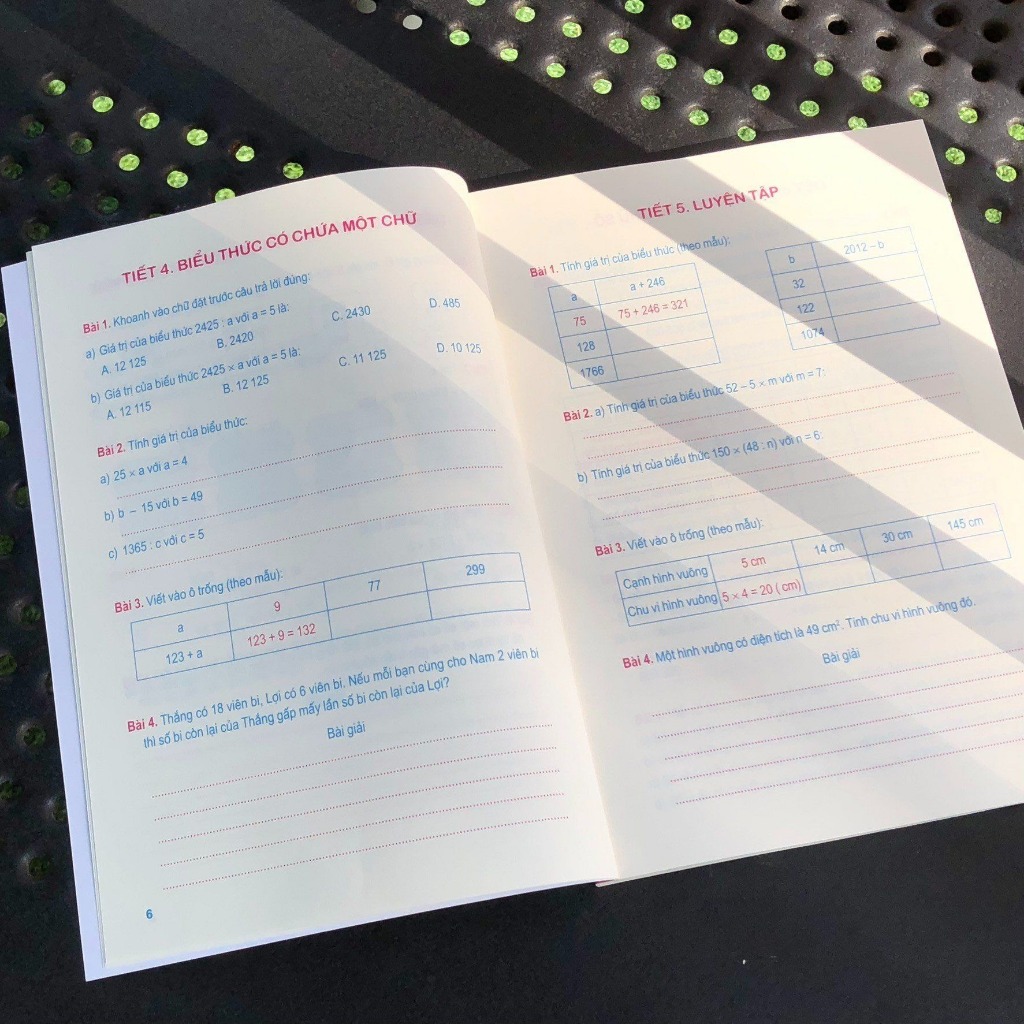 TIẾT 4. BIỂU THỨC CÓ CHỨA MỘT CHỮ
Bài 1. Khoanh vào chữ đặt trước câu trả lời đúng:
a) Giá trị của biểu thức 2425 : a với a = 5 là:
A. 12 125 B. 2420 C. 2430 D. 485
b) Giá trị của biểu thức 2425 × a với a = 5 là:
A. 12 115 B. 12 125 C. 11 125 D. 10 125
Bài 2. Tính giá trị của biểu thức:
a) 25 × a với a = 4
b) b – 15 với b = 49
c) 1365 : c với c = 5
Bài 3. Viết vào ô trống (theo mẫu):
a 9 77 299
123 + a 123 + 9 = 132
Bài 4. Thắng có 18 viên bi, Lợi có 6 viên bi. Nếu mỗi bạn cùng cho Nam 2 viên bi
thì số bi còn lại của Thắng gấp mấy lần số bi còn lại của Lợi?
Bài giải
6
TIẾT 5. LUYỆN TẬP
Bài 1. Tính giá trị của biểu thức (theo mẫu):
a a + 246
75 75 + 246 = 321
128
1766
b 2012 – b
32
122
1074
Bài 2. a) Tính giá trị của biểu thức 52 – 5 × m với m = 7:
b) Tính giá trị của biểu thức 150 × (48 : n) với n = 6:
Bài 3. Viết vào ô trống (theo mẫu):
Cạnh hình vuông 5 cm 14 cm 30 cm 145 cm
Chu vi hình vuông 5 × 4 = 20 ( cm)
Bài 4. Một hình vuông có diện tích là 49 cm². Tính chu vi hình vuông đó.
Bài giải